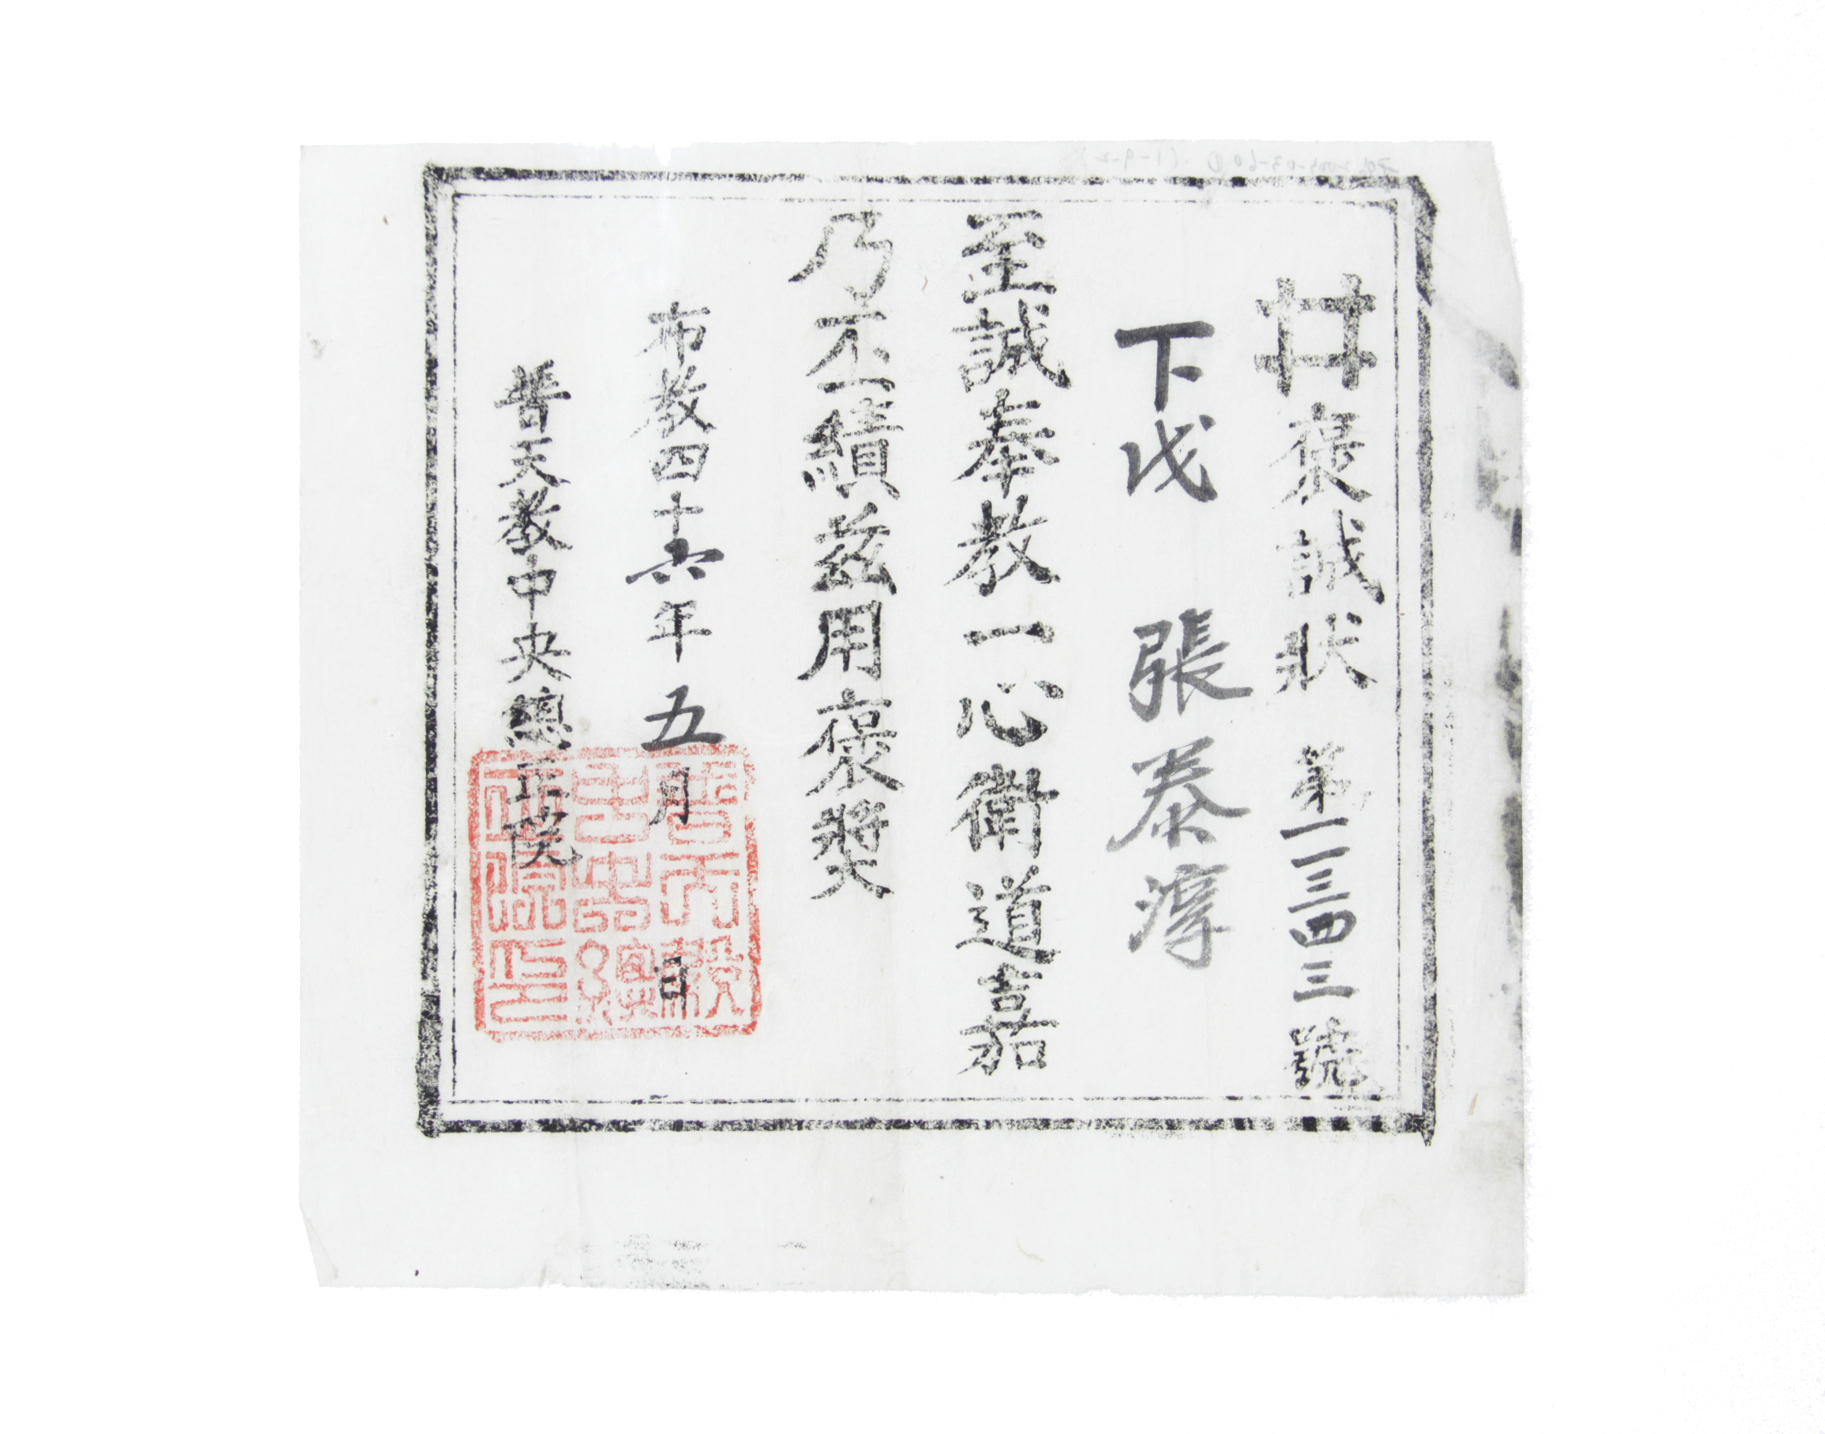 褒誠狀 第一三四三號
下戊 張泰淳
至誠奉教一心衛道嘉
乃丕績茲用褒奬
布教四十六年 五月 日
普天教中央總正院